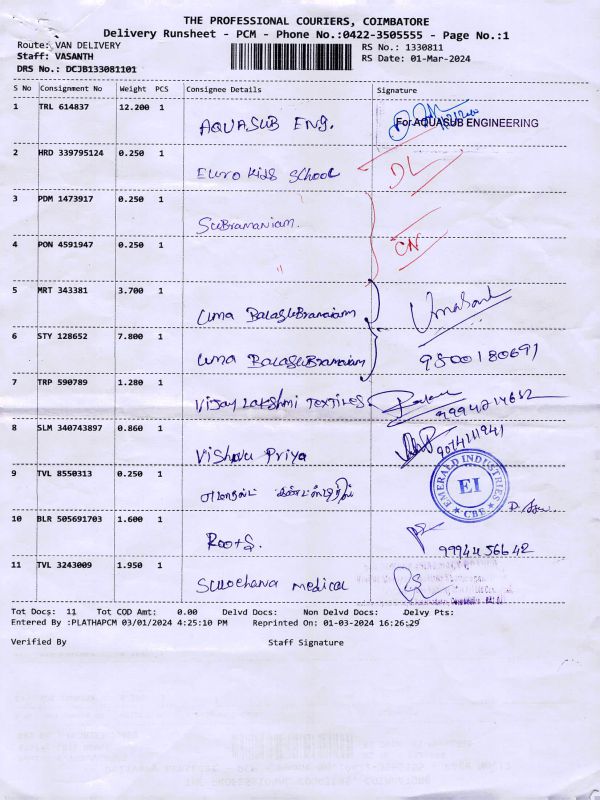 THE PROFESSIONAL COURIERS, COIMBATORE
Delivery Runsheet - PCM - Phone No.:0422-3505555 - Page No.:1
Route: VAN DELIVERY RS No.: 1330811
Staff: VASANTH RS Date: 01-Mar-2024
DRS No.: DCJB133081101
S No Consignment No Weight PCS Consignee Details Signature
1 TRL 614837 12.200 1 AQUASUB ENG. For AQUASUB ENGINEERING
2 HRD 339795124 0.250 1 Euro Kids School DL
3 PDM 1473917 0.250 1 SuBramaniam.
4 PON 4591947 0.250 1 " CN
5 MRT 343381 3.700 1 Uma BalasuBramaiam Umasank
6 STY 128652 7.800 1 Uma BalasuBramaiam 9500180691
7 TRP 590789 1.280 1 Vijay Lakshmi Textiles 9994214652
8 SLM 340743897 0.860 1 Vishnu Priya
9 TVL 8550313 0.250 1 EMERALD INDUSTRIES EI CBE
10 BLR 505691703 1.600 1 Roots. 9994456642
11 TVL 3243009 1.950 1 Sulochana Medical
Tot Docs: 11 Tot COD Amt: 0.00 Delvd Docs: Non Delvd Docs: Delvy Pts:
Entered By :PLATHAPCM 03/01/2024 4:25:10 PM Reprinted On: 01-03-2024 16:26:29
Verified By Staff Signature